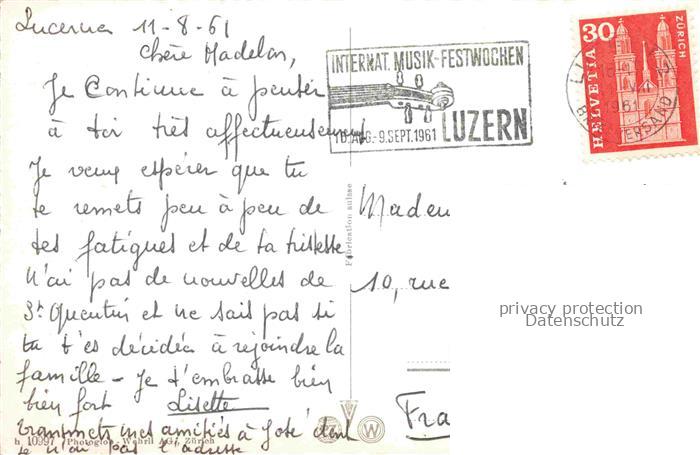 Lucerna 11-8-61
Chère Madelon,
Je Continue à penser
à toi très affectueusement
Je veux espérer que tu
te remets peu à peu de
tes fatigues et de ta tristesse
N'ai pas de nouvelles de
St Quentin et ne sais pas si
tu t'es décidée à rejoindre la
famille - Je t'embrasse bien
bien fort Lisette
transmets mes amitiés à José dont
je n'ai pas l'adresse
h 10997 Photoglob-Wehrli AG, Zürich
Fabrication suisse
INTERNAT. MUSIK-FESTWOCHEN
AUG.-9.SEPT.1961 LUZERN
30
ZÜRICH
HELVETIA
1961
BRIEFVERSAND
Madem
10, rue
Fra
W
privacy protection
Datenschutz